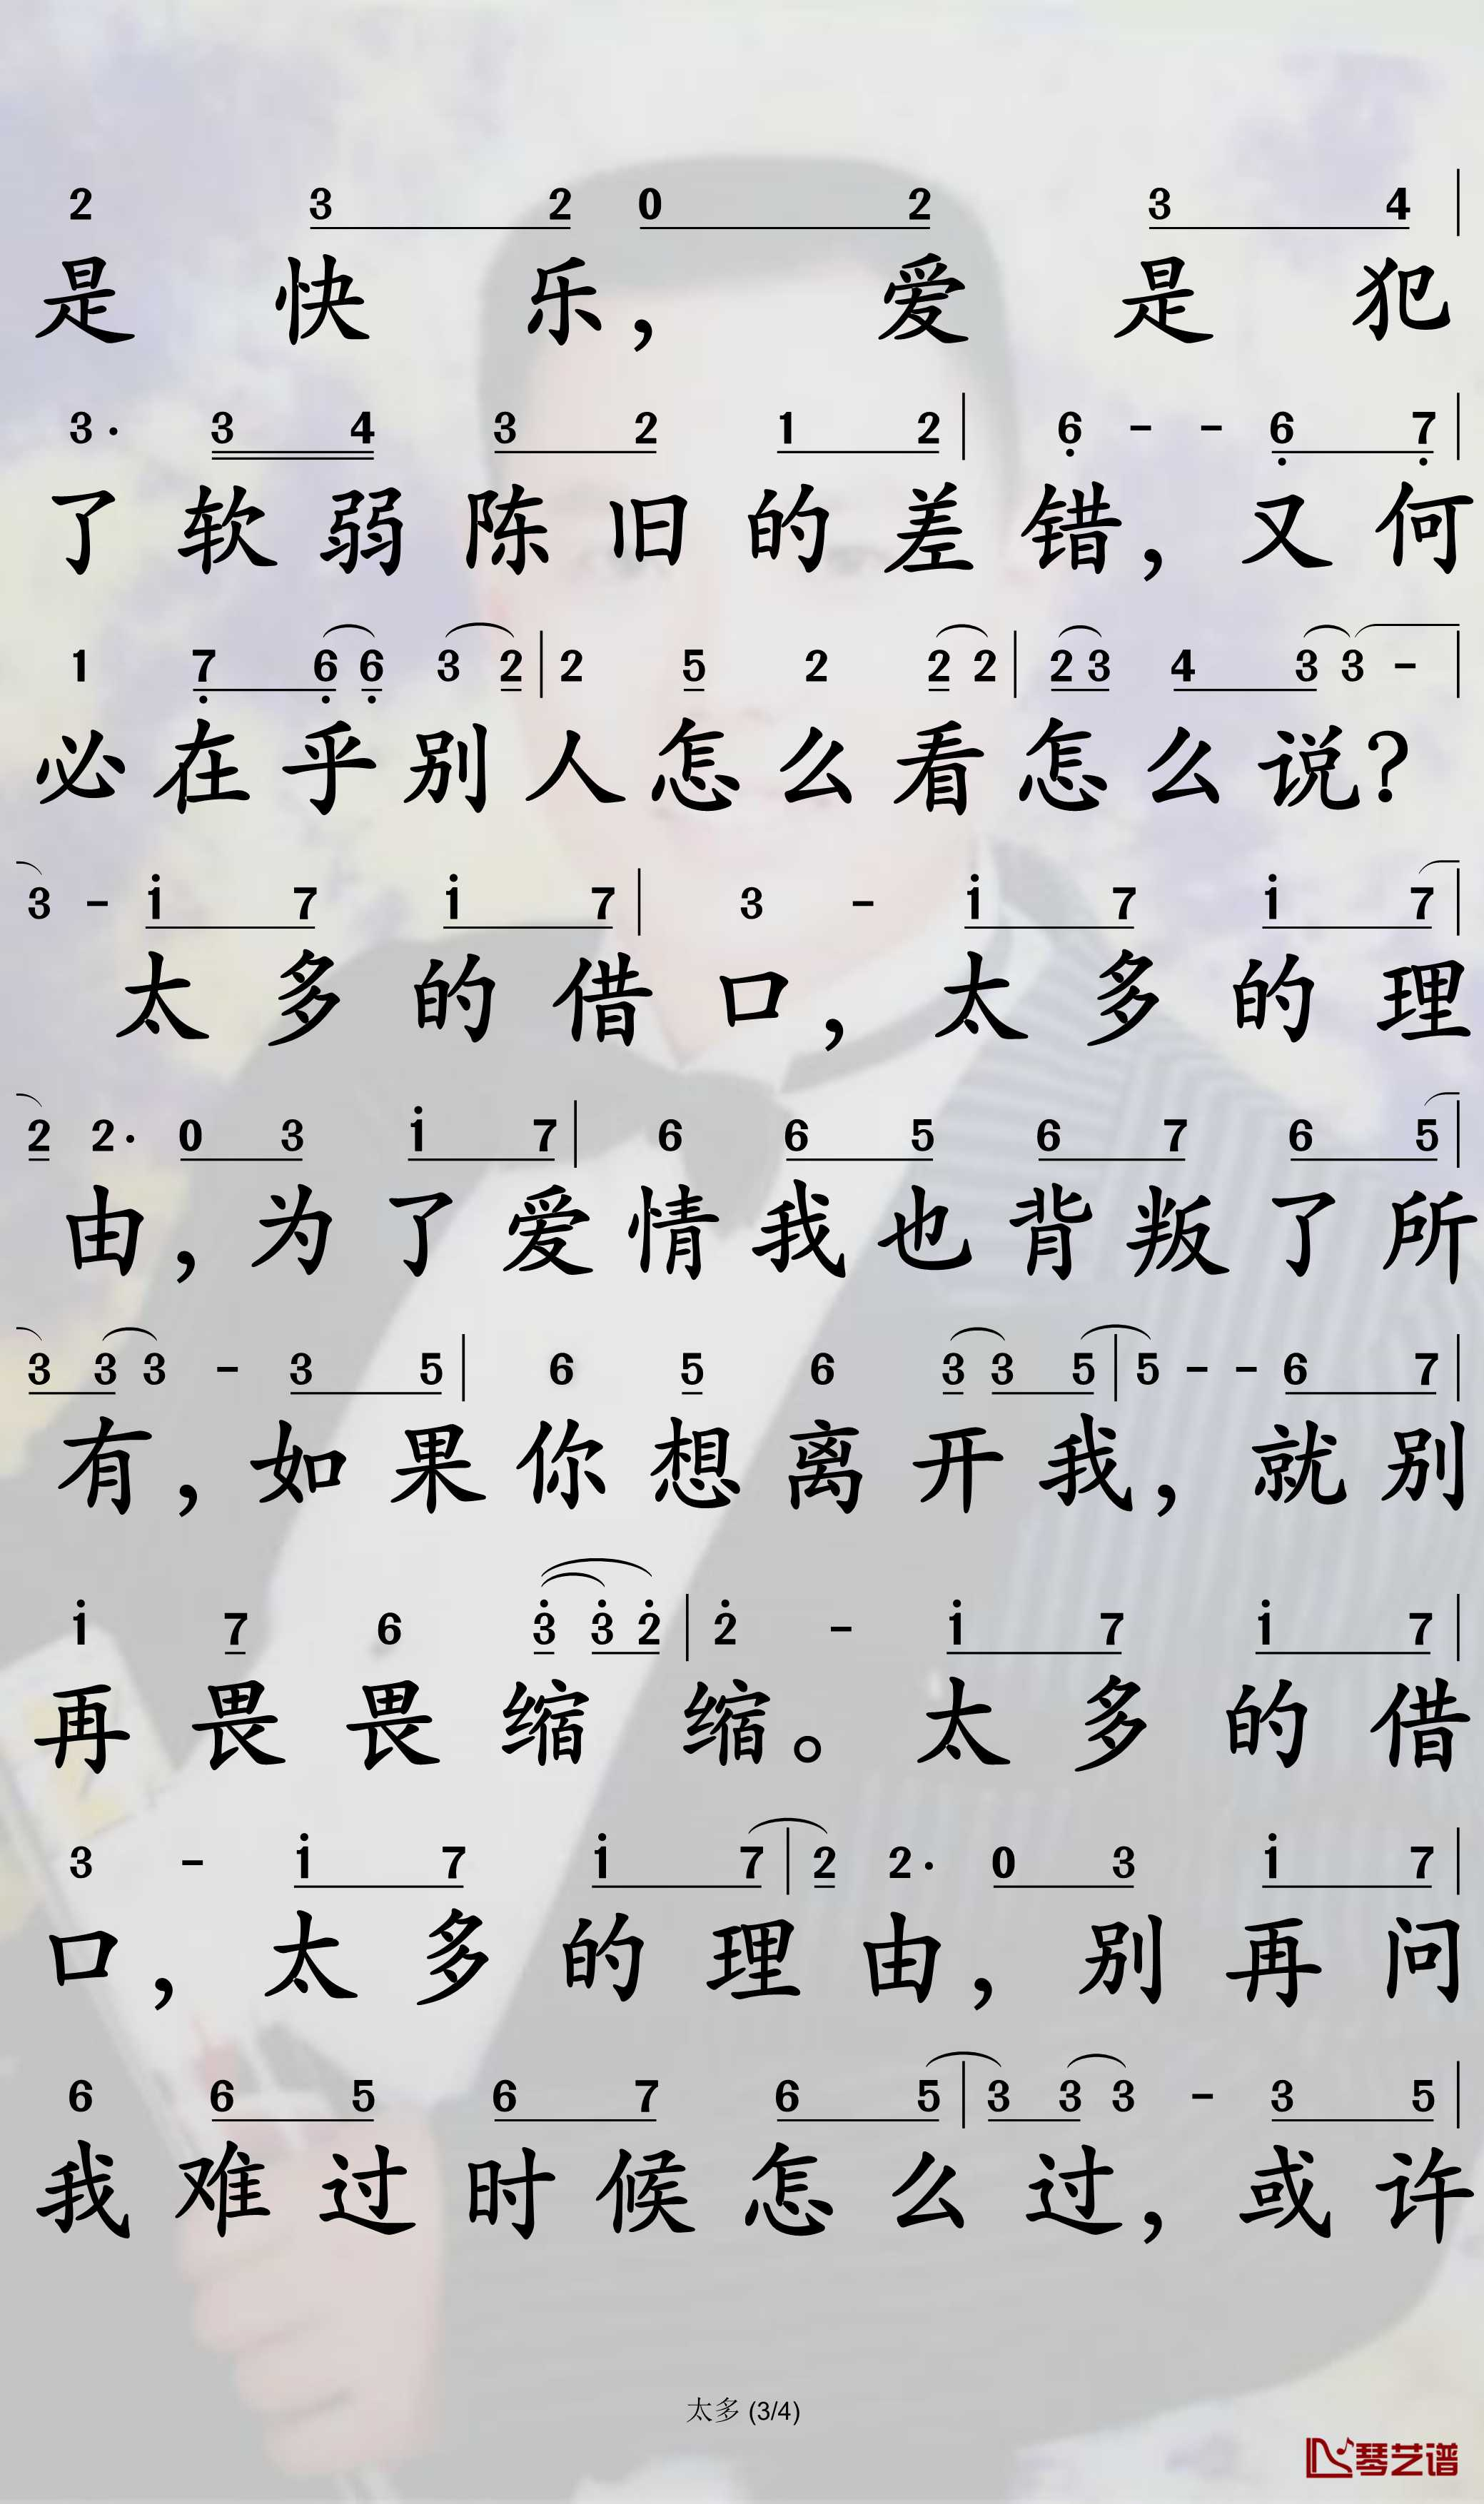 2 3 2 0 2 3 4 |
是快乐，爱是犯
3· 3 4 3 2 1 2 | 6̣ - - 6̣ 7̣ |
了软弱陈旧的差错，又何
1 7̣ 6̣ 6̣ 3 2 | 2 5 2 2 2 | 2 3 4 3 3 - |
必在乎别人怎么看怎么说？
3 - i 7 i 7 | 3 - i 7 i 7 |
太多的借口，太多的理
2 2· 0 3 i 7 | 6 6 5 6 7 6 5 |
由，为了爱情我也背叛了所
3 3 3 - 3 5 | 6 5 6 3 3 5 | 5 - - 6 7 |
有，如果你想离开我，就别
i 7 6 3̇ 3̇ 2̇ | 2̇ - i 7 i 7 |
再畏畏缩缩。太多的借
3 - i 7 i 7 | 2 2· 0 3 i 7 |
口，太多的理由，别再问
6 6 5 6 7 6 5 | 3 3 3 - 3 5 |
我难过时候怎么过，或许
太多 (3/4)
琴艺谱